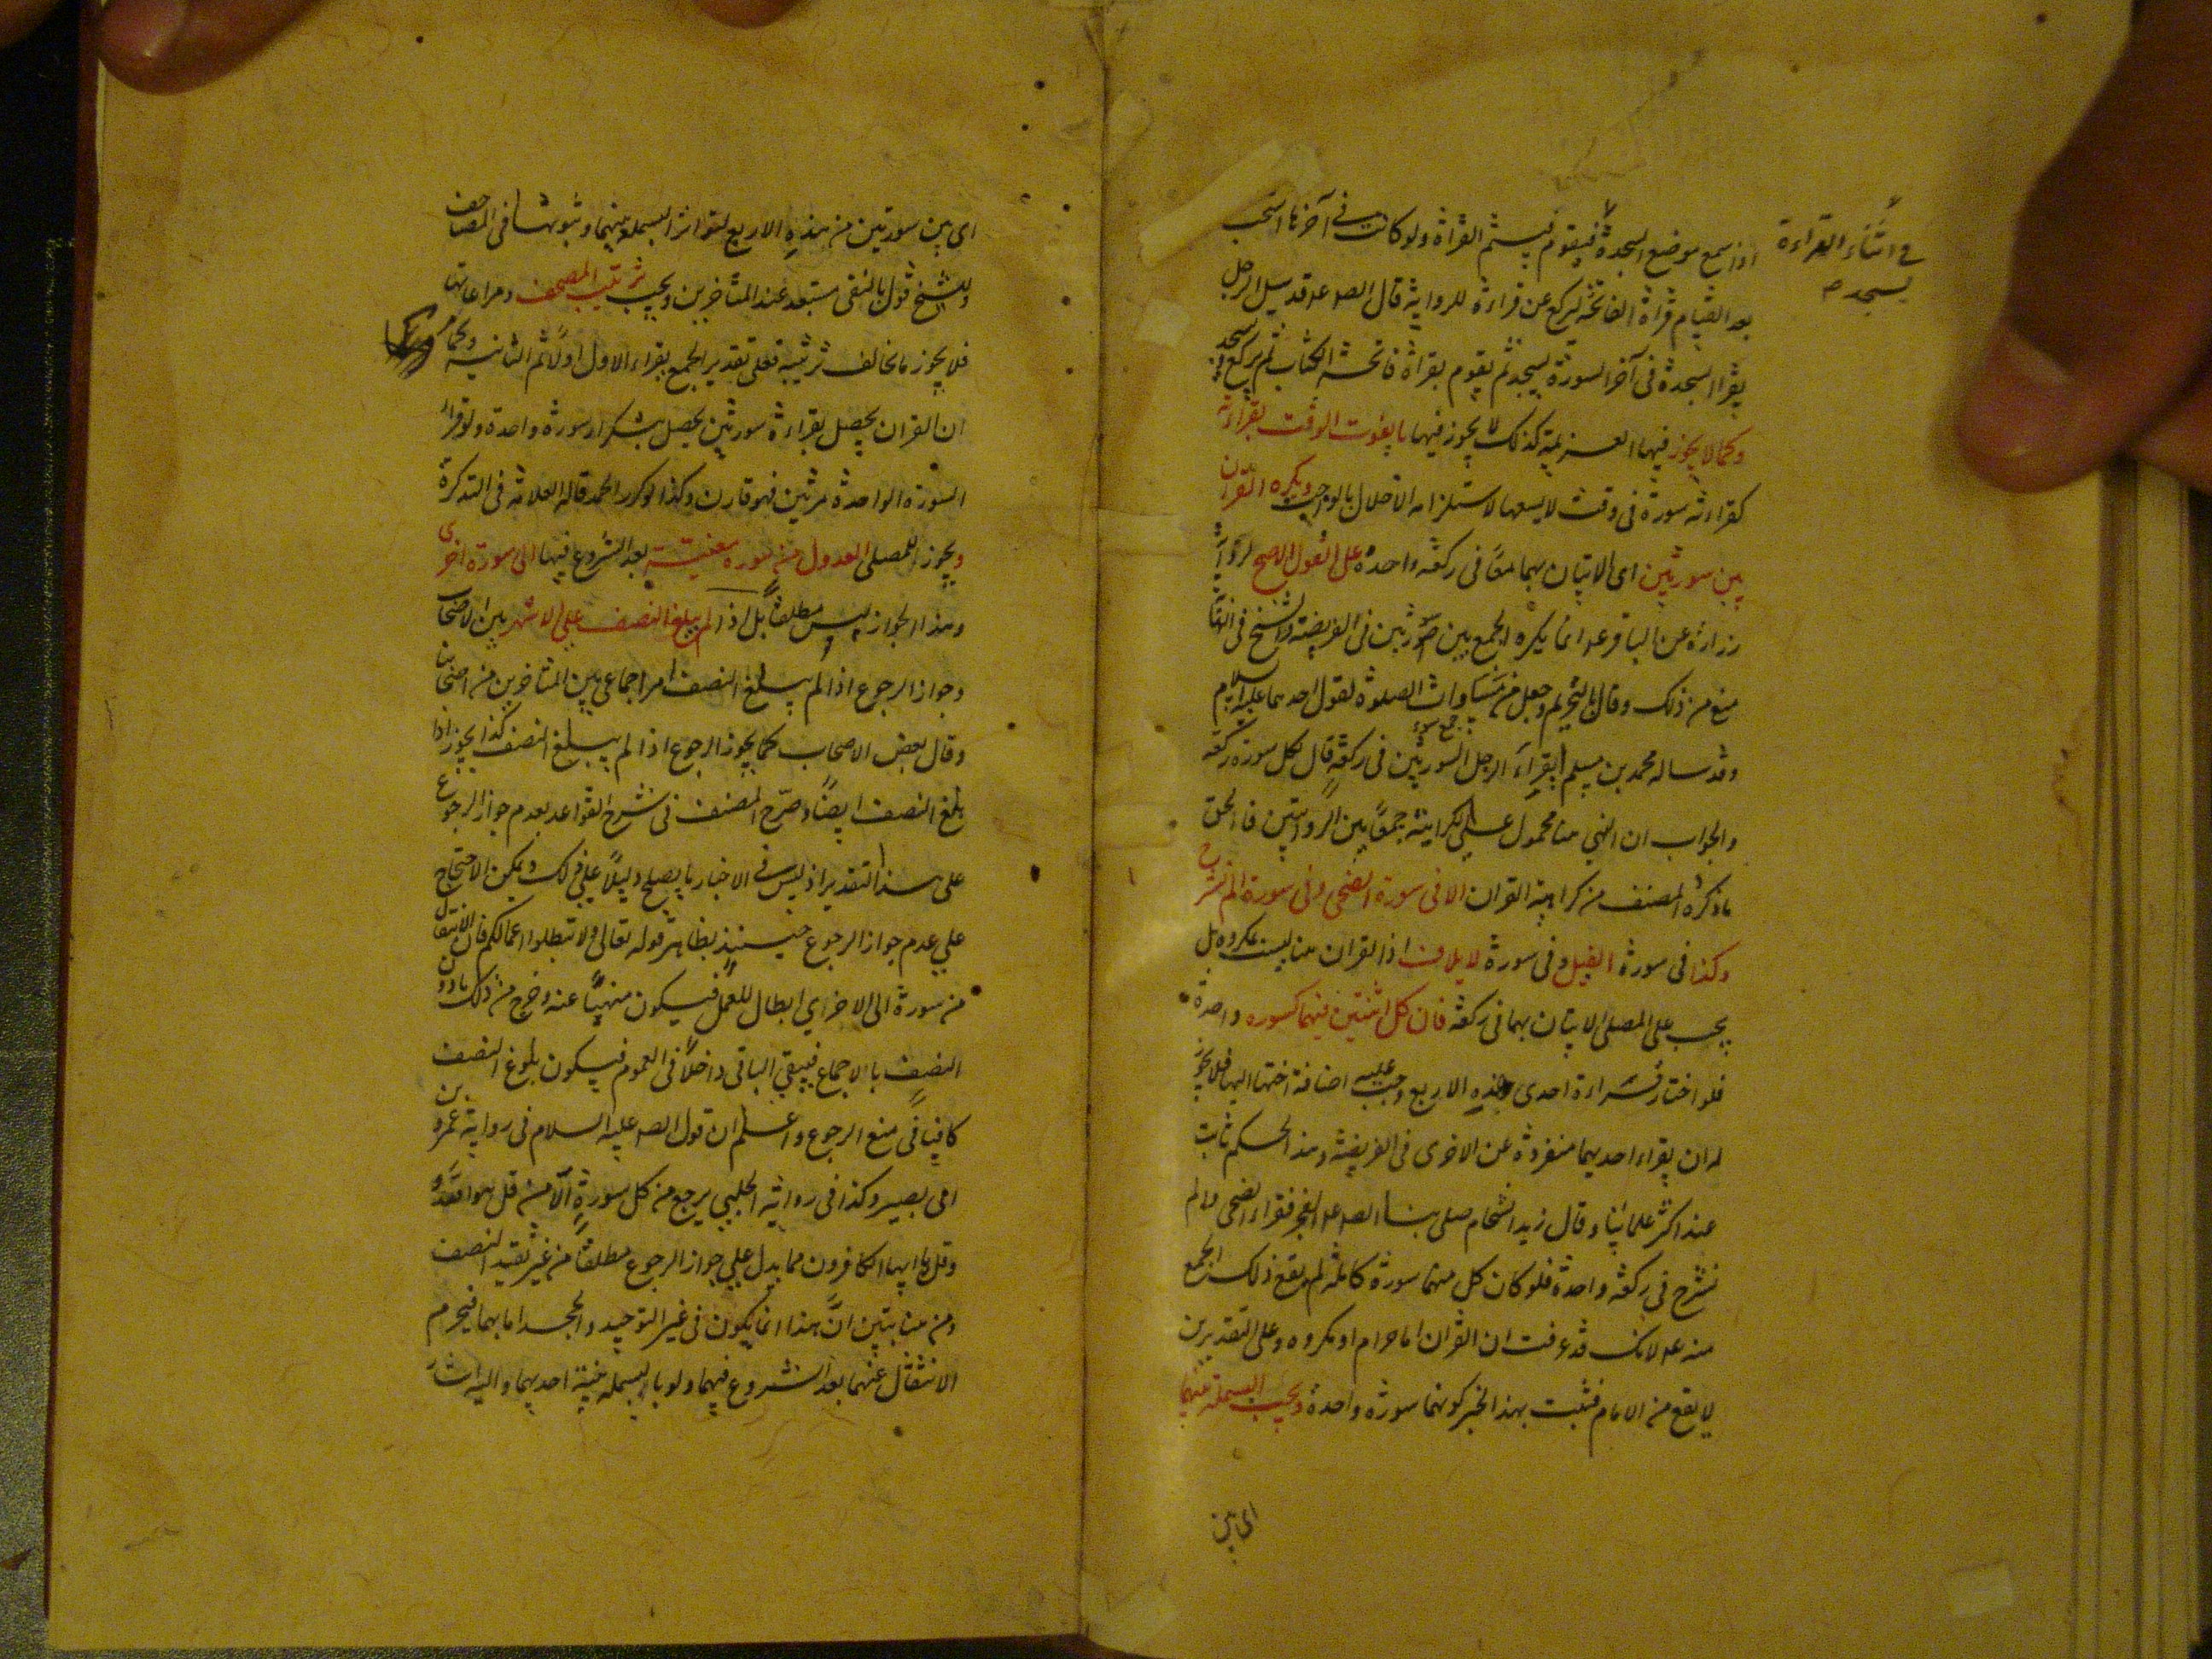 في اثناء القراءة
يسجد
اذا سمع موضع السجدة فيقوم فيتم القراة ولو كانت في آخرها استحب
بعد القيام قراة الفاتحة ليركع عن قراءة للرواية قال الص عه قد سيل الرجل
يقرا السجدة في آخر السورة يسجد ثم يقوم بقراة فاتحة الكتاب ثم يركع ويسجد
وكما لا يجوز فيها العزيمة كذلك لا يجوز فيها ما يفوت الوقت بقراءته
كقراءته سورة في وقت لا يسعها لاستلزامه الاخلال بالواجب ويكره القران
بين سورتين اى الاتيان بهما معًا في ركعة واحدة على القول الاصح لرواية
زرارة عن الباقر عه انما يكره الجمع بين سورتين في الفريضة والشيخ في النها
منع من ذلك وقال بالتحريم وجعل من الصلوة لقول احدهما عليه السلام
وقد ساله محمد بن مسلم ايقراء الرجل السورتين في ركعة قال لكل سورة ركعة
والجواب ان النهي هنا محمول على الكراهية جمعًا بين الروايتين فالحق
ما ذكره المصنف من كراهية القران الا في سورة الضحى وفي سورة الم نشرح
وكذا في سورة الفيل وفي سورة لايلاف اذ القران هنا ليست بمكروه بل
يجب على المصلى الاتيان بهما في ركعة فان كل اثنتين منهما كسورة واحدة
فلو اختار قراءة احدى هذه الاربع وجب عليه اضافة اختها اليها فلا يجوز
له ان يقراء احديهما منفردة عن الاخرى في الفريضة وهذا الحكم ثابت
عند اكثر علمائنا وقال زيد الشحام صلى بنا الص عه الفجر فقراء الضحى والم
نشرح في ركعة واحدة فلو كان كل منهما سورة كاملة لم يقع ذلك الجمع
منه عه لانك قد عرفت ان القران اما حرام او مكروه وعلى التقديرين
لا يقع من الامام فثبت بهذا الخبر كونهما سورة واحدة ويجب البسملة بينهما
اى بين
اى بين سورتين من هذه الاربع لتواتر البسملة بينهما وثبوتها في المصاحف
وللشيخ قول بالنفى مستبعد عند المتاخرين ويجب ترتيب المصحف ومراعاتها
فلا يجوز ما يخالف ترتيبه فعلى تقدير الجمع يقراء الاول اولًا ثم الثانية وكما
ان القران يحصل بقراءة سورتين يحصل بتكرار سورة واحدة ولو قرا
السورة الواحدة مرتين فهو قارن وكذا لو كرر الحمد قاله العلامة في التذكرة
ويجوز للمصلى العدول من سورة معينة بعد الشروع فيها الى سورة اخرى
وهذا الجواز ليس مطلقًا بل اذا لم يبلغ النصف على الاشهر بين الاصحاب
وجواز الرجوع اذا لم يبلغ النصف امر اجماعي بين المتاخرين من اصحابنا
وقال بعض الاصحاب كما يجوز الرجوع اذا لم يبلغ النصف كذا يجوز اذا
بلغ النصف ايضًا وصرّح المصنف في شرح القواعد بعدم جواز الرجوع
على هذا التقدير اذ ليس في الاخبار ما يصلح دليلًا على ذلك ويمكن الاحتجاج
على عدم جواز الرجوع حينئذ بظاهر قوله تعالى ولا تبطلوا اعمالكم فان الانتقال
من سورة الى الاخرى ابطال للعمل فيكون منهيًا عنه وخرج من ذلك ما دون
النصف بالاجماع فيبقى الباقى داخلًا في العموم فيكون بلوغ النصف
كافيًا في منع الرجوع واعلم ان قول الص عليه السلام في رواية عمرو بن
ابى بصير وكذا في رواية الحلبي يرجع من كل سورة الّا من قل هو الله احد و
وقل يا ايها الكافرون مما يدل على جواز الرجوع مطلقًا من غير تقييد النصف
ومن هنا يتبين انّ هذا انما يكون في غير التوحيد والجحد اما بهما فيحرم
الانتقال عنهما بعد الشروع فيهما ولو بالبسملة بنية احديهما واليه اشار